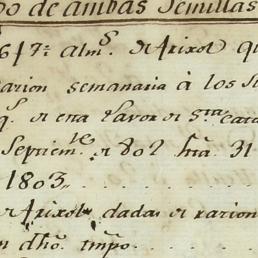 po de ambas Semillas
647: alm.s de frixol qu
racion semanaria à los s
q.s de esta Lavor de S.ta Cata
Septiem.re de 802 h.ta 31
1803,,
de frixol dadas de racion
n dho. tmpo.